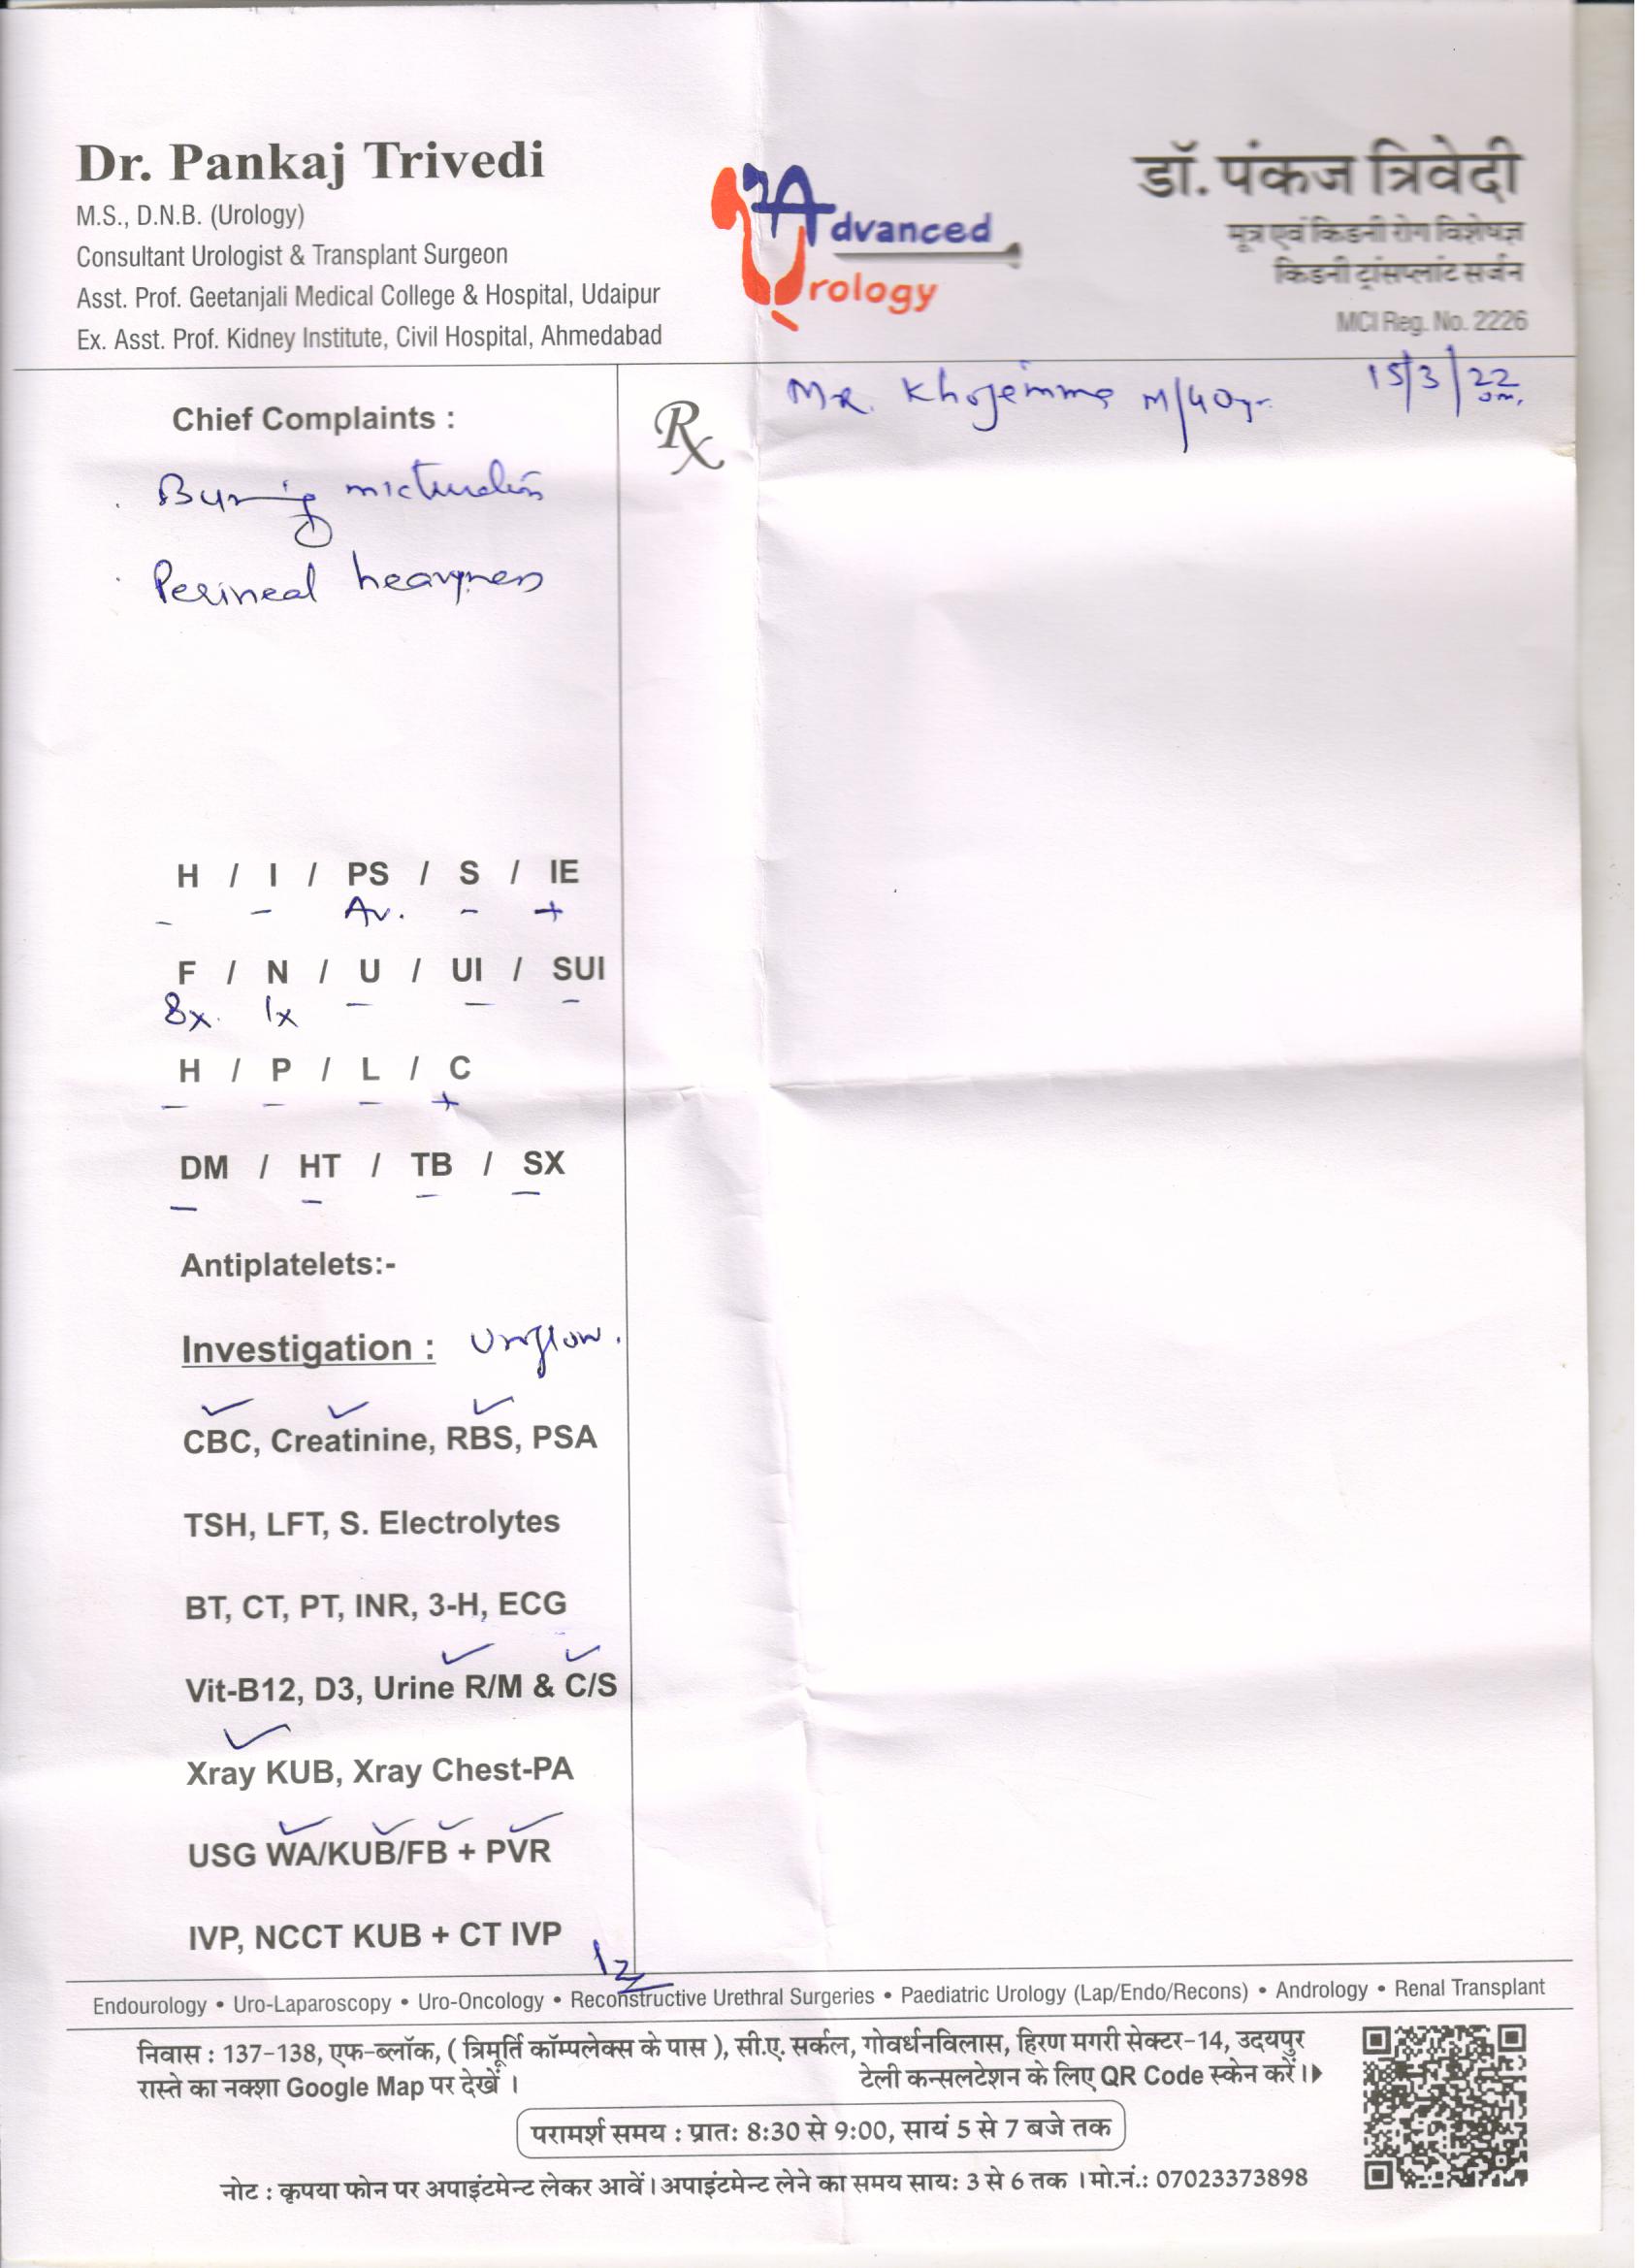 Dr. Pankaj Trivedi
M.S., D.N.B. (Urology)
Consultant Urologist & Transplant Surgeon
Asst. Prof. Geetanjali Medical College & Hospital, Udaipur
Ex. Asst. Prof. Kidney Institute, Civil Hospital, Ahmedabad
Advanced
Urology
डॉ. पंकज त्रिवेदी
मूत्र एवं किडनी रोग विशेषज्ञ
किडनी ट्रांसप्लांट सर्जन
MCI Reg. No. 2226
Mr. M/40yr. 15/3/22
Rx
Chief Complaints :
. Burning micturition
. Perineal heavyness
H / I / PS / S / IE
- - Av. - +
F / N / U / UI / SUI
8x. 1x - - -
H / P / L / C
- - - +
DM / HT / TB / SX
- - - -
Antiplatelets:-
Investigation : Uroflow.
✓ ✓ ✓
CBC, Creatinine, RBS, PSA
TSH, LFT, S. Electrolytes
BT, CT, PT, INR, 3-H, ECG
✓ ✓
Vit-B12, D3, Urine R/M & C/S
✓
Xray KUB, Xray Chest-PA
✓ ✓ ✓ ✓
USG WA/KUB/FB + PVR
IVP, NCCT KUB + CT IVP
Endourology • Uro-Laparoscopy • Uro-Oncology • Reconstructive Urethral Surgeries • Paediatric Urology (Lap/Endo/Recons) • Andrology • Renal Transplant
निवास : 137-138, एफ-ब्लॉक, ( त्रिमूर्ति कॉम्पलेक्स के पास ), सी.ए. सर्कल, गोवर्धनविलास, हिरण मगरी सेक्टर-14, उदयपुर
रास्ते का नक्शा Google Map पर देखें । टेली कन्सलटेशन के लिए QR Code स्केन करें।
परामर्श समय : प्रातः 8:30 से 9:00, सायं 5 से 7 बजे तक
नोट : कृपया फोन पर अपाइंटमेन्ट लेकर आवें। अपाइंटमेन्ट लेने का समय सायः 3 से 6 तक । मो.नं.: 07023373898